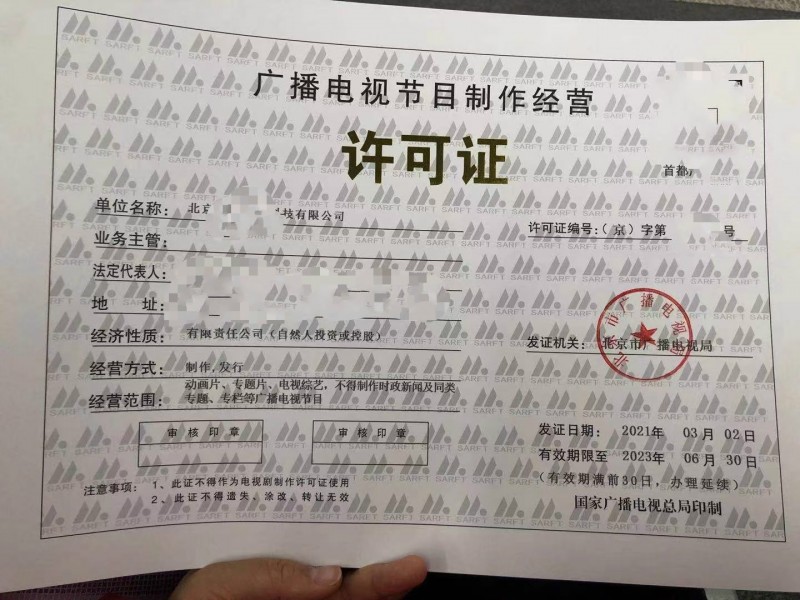 广播电视节目制作经营
许可证
首都
单位名称： 北京 技有限公司
许可证编号：（京）字第 号
业务主管：
法定代表人：
地 址：
经济性质： 有限责任公司（自然人投资或控股）
发证机关： 北京市广播电视局
经营方式： 制作,发行
经营范围： 动画片、专题片、电视综艺，不得制作时政新闻及同类
专题、专栏等广播电视节目
审核印章
审核印章
发证日期： 2021年 03月 02日
有效期限至 2023年 06月 30日
（有效期满前30日，办理延续）
注意事项： 1、此证不得作为电视剧制作许可证使用
2、此证不得遗失、涂改、转让无效
国家广播电视总局印制
北京市广播电视局
SARFT